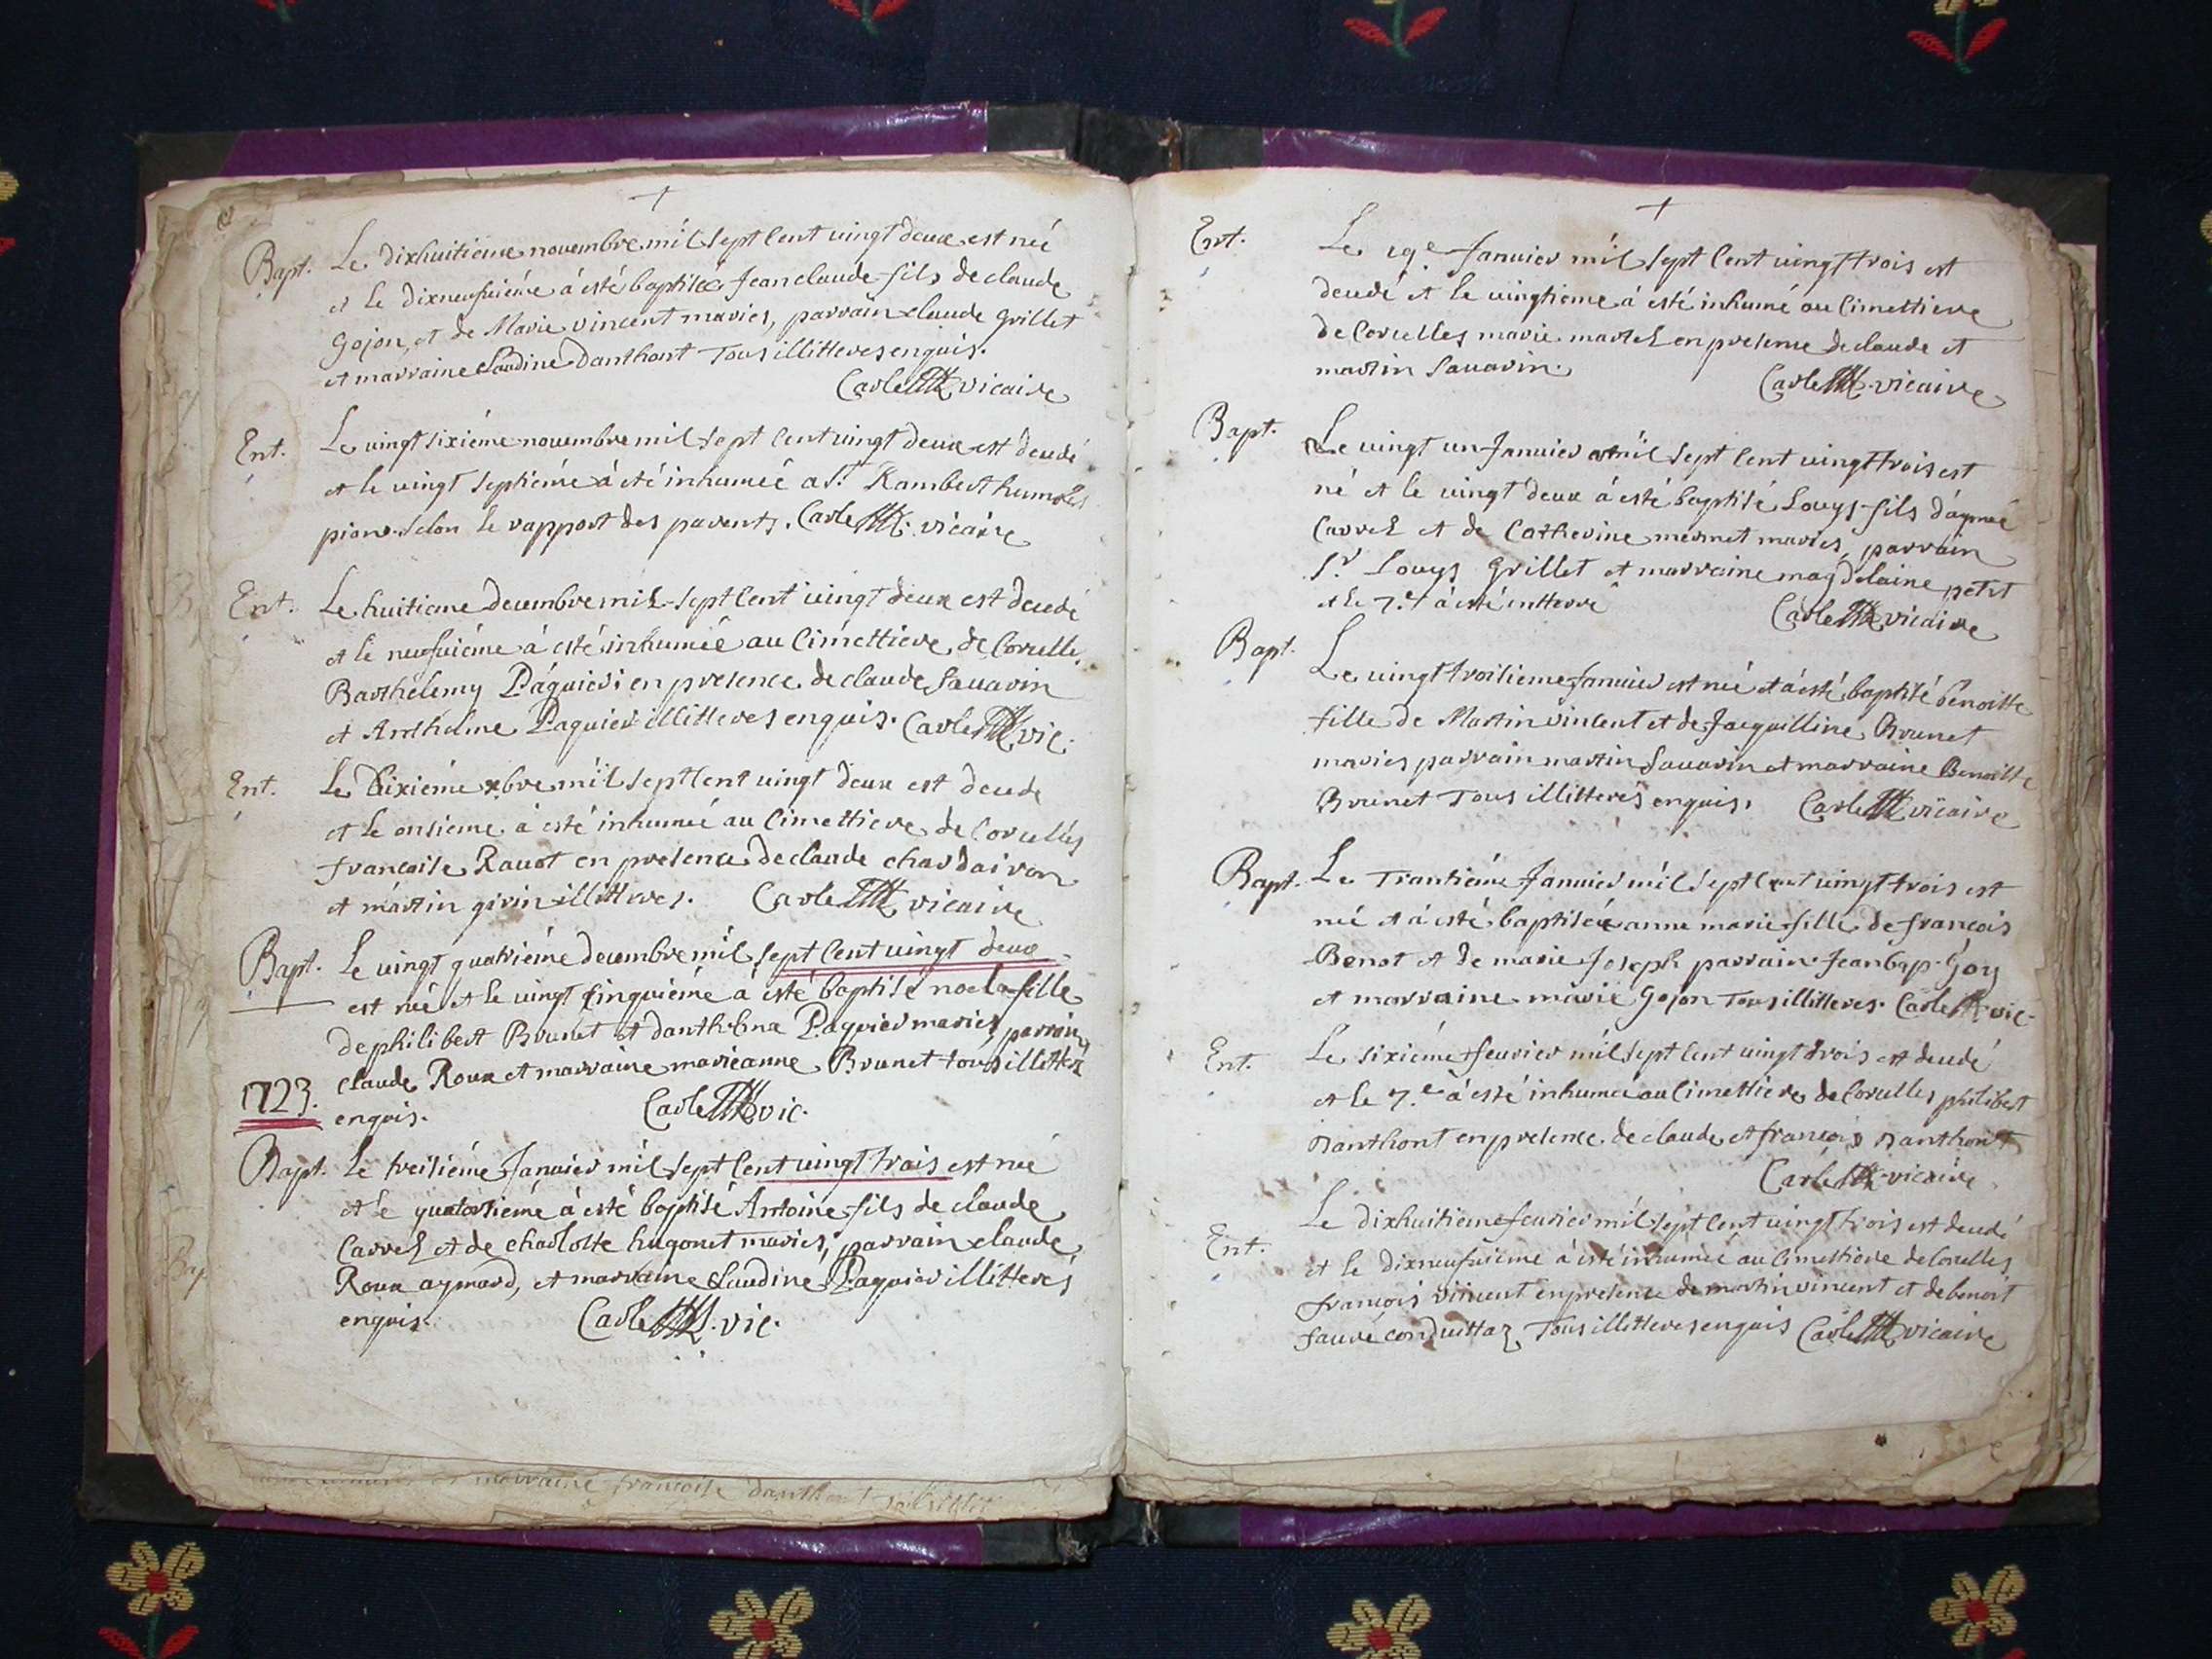 +
Bapt. Le dixhuitieme novembre mil sept cent vingt deux est née
et le dixneufuiéme à esté baptisée Jean claude fils de claude
Gojon, et de Marie vincent mariés, parrain claude Grillet
et marraine Claudine Danthont Tous illitteres enquis.
Carle vicaire
Ent. Le vingt sixiéme novembre mil sept cent vingt deux est decedé
et le vingt septiéme à été inhumée a St. Rambert
selon le rapport des parents. Carle vicaire
Ent. Le huitieme decembre mil sept cent vingt deux est decedé
et le neufuiéme à esté inhumée au Cimettiere de Corcelle
Barthelemy Paquier en presence de claude Sauarin
et Anthelme Paquier illitteres enquis. Carle vic.
Ent. Le Dixiéme xbre mil sept cent vingt deux est decede
et le onsieme à esté inhumée au Cimettiere de Corcelles
francoise Rauot en presence de claude chardairon
et martin girin illitteres. Carle vicaire
Bapt. Le vingt quatriéme decembre mil sept cent vingt deux
est née et le vingt cinquiéme à esté baptisé noela fille
de philibert Brunet et danthelma Paquier mariés, parrain
claude Roux et marraine marieanne Brunet tous illitteres
1723. enquis. Carle vic.
Bapt. Le treisiéme Januier mil sept cent vingt trois est née
et le quatorsiéme à esté baptisé Antoine fils de claude
Carrel et de charlotte hugonet mariés, parrain claude
Roux aymard, et marraine Claudine Paquier illitterés
enquis. Carle vic.
marraine francoise danthont
+
Ent. Le 19e Januier mil sept cent vingt trois est
decedé et le vingtieme à esté inhumé au Cimettiere
de Corcelles marie martel en presence de claude et
martin Sauarin. Carle vicaire
Bapt. Le vingt un Januier mil sept cent vingt trois est
né et le vingt deux à esté baptisé Louys fils d'aymé
Carrel et de Catherine mermet mariés, parrain
Sr. Louys Grillet et marraine magdelaine petit
et le 7.e à esté entterré Carle vicaire
Bapt. Le vingt troisieme Januier est née et à esté baptisé benoitte
fille de Martin vincent et de Jacquilline Brunet
mariés parrain martin Sauarin et marraine Benoitte
Brunet Tous illitteres enquis, Carle vicaire
Bapt. Le Trantiéme Januier mil sept cent vingt trois est
née et à esté baptisée anne marie fille de francois
Benot et de marie Joseph parrain Jean bap. Goy
et marraine marie Gojon Tous illitteres. Carle vic.
Ent. Le sixiéme feurier mil sept cent vingt trois est decedé
et le 7.e à esté inhumée au Cimettiere de Corcelles philibert
Danthont en presence de claude et francois Danthont
Carle vicaire
Ent. Le dixhuitieme feurier mil sept cent vingt trois est decedé
et le dixneufuieme à esté inhumée au Cimettiere de Corcelles
francois vincent en presence de martin vincent et de benoit
fauré conduittaz Tous illitteres enquis Carle vicaire